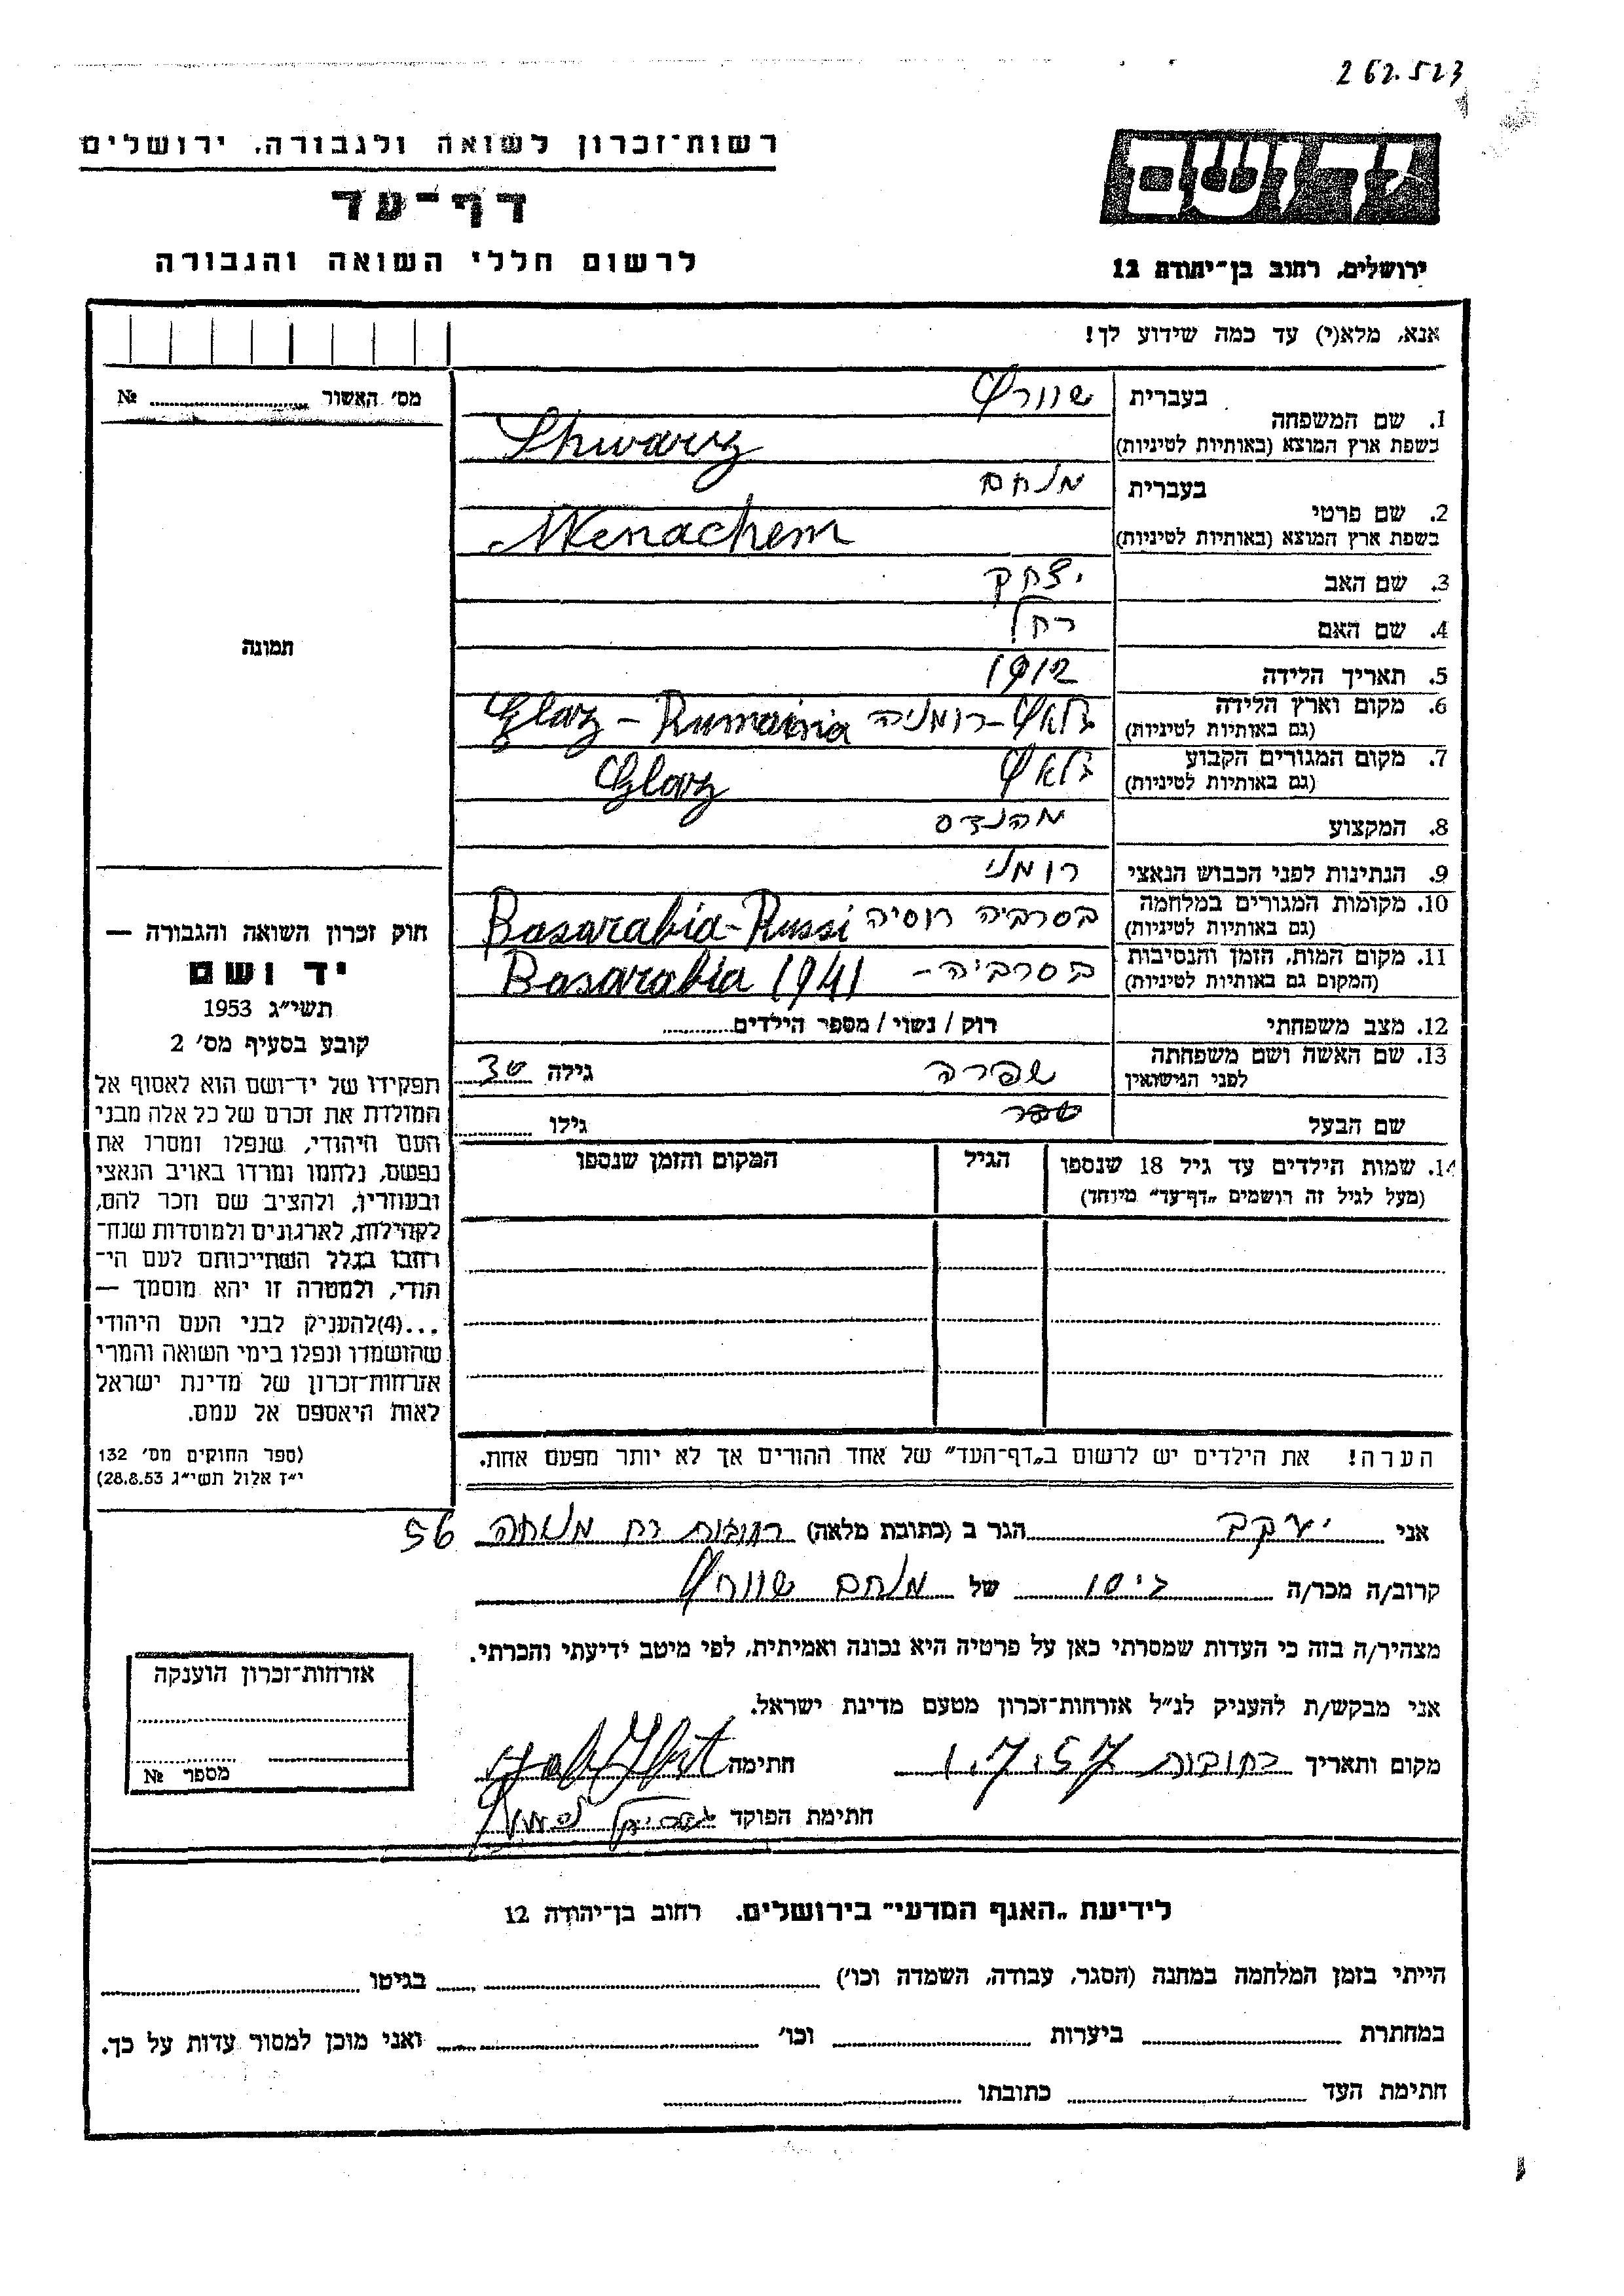 262.523
רשות־זכרון לשואה ולגבורה, ירושלים
דף־עד
לרשום חללי השואה והגבורה
יד ושם
ירושלים, רחוב בן־יהודה 12
אנא, מלא(י) עד כמה שידוע לך!
מס׳ האשור № 
1. שם המשפחה
בעברית שוורץ
בשפת ארץ המוצא (באותיות לטיניות) Shwarz
2. שם פרטי
בעברית מנחם
בשפת ארץ המוצא (באותיות לטיניות) Menachem
3. שם האב יצחק
4. שם האם רחל
5. תאריך הלידה 1912
6. מקום וארץ הלידה גלאץ-רומניה Glaz - Rumainia
(גם באותיות לטיניות)
7. מקום המגורים הקבוע גלאץ Glaz
(גם באותיות לטיניות)
8. המקצוע מהנדס
9. הנתינות לפני הכבוש הנאצי רומני
10. מקומות המגורים במלחמה בסרביה רוסיה Basarabia-Russi
(גם באותיות לטיניות)
11. מקום המות, הזמן והנסיבות בסרביה- Basarabia 1941
(המקום גם באותיות לטיניות)
12. מצב משפחתי רוק / נשוי / מספר הילדים
13. שם האשה ושם משפחתה שפרה גילה 30
לפני הנישואין
שם הבעל גילו
14. שמות הילדים עד גיל 18 שנספו הגיל המקום והזמן שנספו
(מעל לגיל זה רושמים „דף־עד״ מיוחד)
הערה! את הילדים יש לרשום ב„דף־העד״ של אחד ההורים אך לא יותר מפעם אחת.
תמונה
חוק זכרון השואה והגבורה —
יד ושם
תשי״ג 1953
קובע בסעיף מס׳ 2
תפקידו של יד־ושם הוא לאסוף אל
המולדת את זכרם של כל אלה מבני
העם היהודי, שנפלו ומסרו את
נפשם, נלחמו ומרדו באויב הנאצי
ובעוזריו, ולהציב שם וזכר להם,
לקהילות, לארגונים ולמוסדות שנח־
רבו בגלל השתייכותם לעם הי־
הודי, ולמטרה זו יהא מוסמך —
...(4)להעניק לבני העם היהודי
שהושמדו ונפלו בימי השואה והמרי
אזרחות־זכרון של מדינת ישראל
לאות היאספם אל עמם.
(ספר החוקים מס׳ 132
י״ז אלול תשי״ג 28.8.53)
אני יעקב הגר ב (כתובת מלאה) רחובות רח מנוחה 56
קרוב/ה מכר/ה גיסו של מנחם שוורץ
מצהיר/ה בזה כי העדות שמסרתי כאן על פרטיה היא נכונה ואמיתית, לפי מיטב ידיעתי והכרתי.
אני מבקש/ת להעניק לנ״ל אזרחות־זכרון מטעם מדינת ישראל.
מקום ותאריך רחובות 1.7.57 חתימה
חתימת הפוקד
אזרחות־זכרון הוענקה
מספר №
לידיעת „האגף המדעי״ בירושלים. רחוב בן־יהודה 12
הייתי בזמן המלחמה במחנה (הסגר, עבודה, השמדה וכו׳) בגיטו
במחתרת ביערות וכו׳ ואני מוכן למסור עדות על כך.
חתימת העד כתובתו